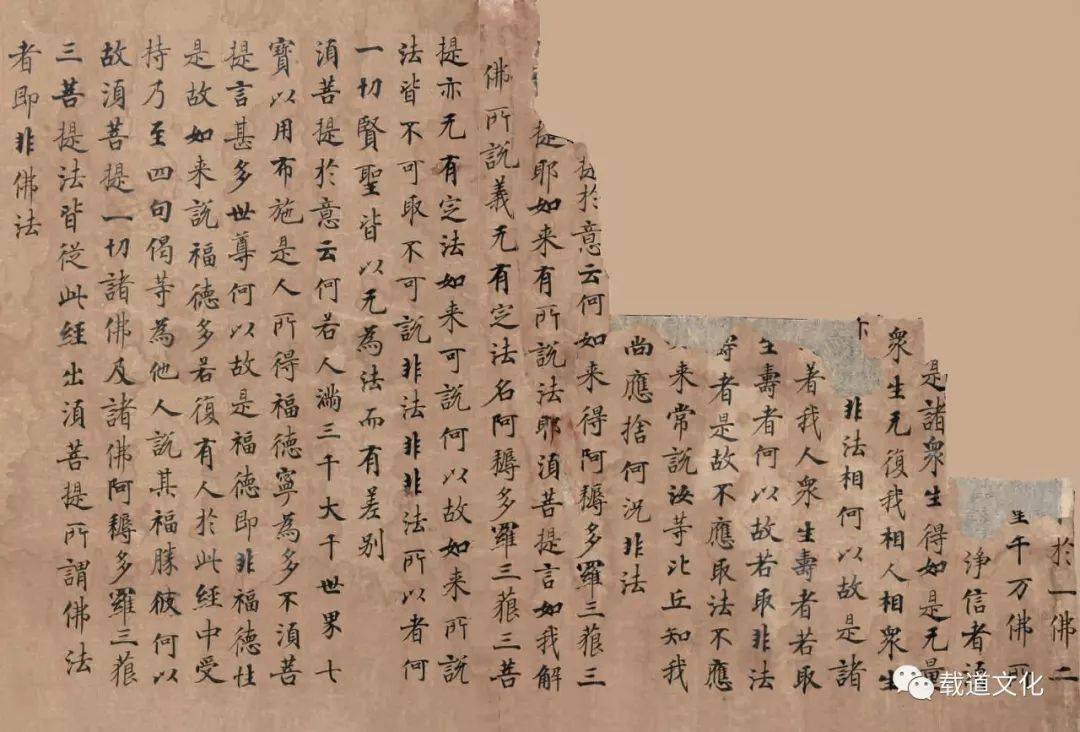 於一佛二
生千万佛所
淨信者湏
是諸衆生得如是无量
衆生无復我相人相衆生
非法相何以故是諸
著我人衆生壽者若取
生壽者何以故若取非法
壽者是故不應取法不應
来常說汝等比丘知我
尚應捨何況非法
提於意云何如来得阿耨多羅三藐三
提耶如来有所說法耶湏菩提言如我解
佛所說義无有定法名阿耨多羅三藐三菩
提亦无有定法如来可說何以故如来所說
法皆不可取不可說非法非非法所以者何
一切賢聖皆以无為法而有差别
湏菩提於意云何若人滿三千大千世界七
寶以用布施是人所得福德寧為多不湏菩
提言甚多世尊何以故是福德即非福德性
是故如来說福德多若復有人於此經中受
持乃至四句偈等為他人說其福勝彼何以
故湏菩提一切諸佛及諸佛阿耨多羅三藐
三菩提法皆從此經出湏菩提所謂佛法
者即非佛法
载道文化